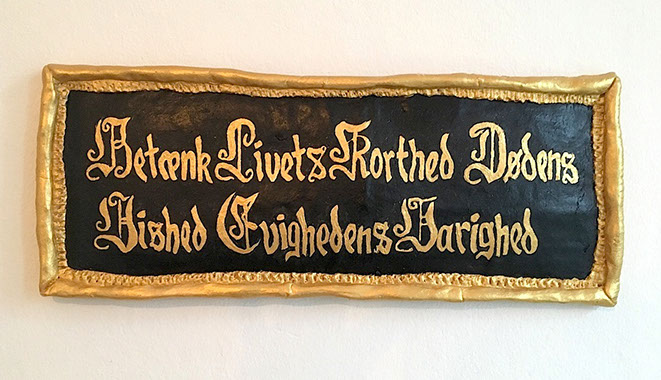 Betænk Livets Korthed Dødens
Vished Evighedens Varighed